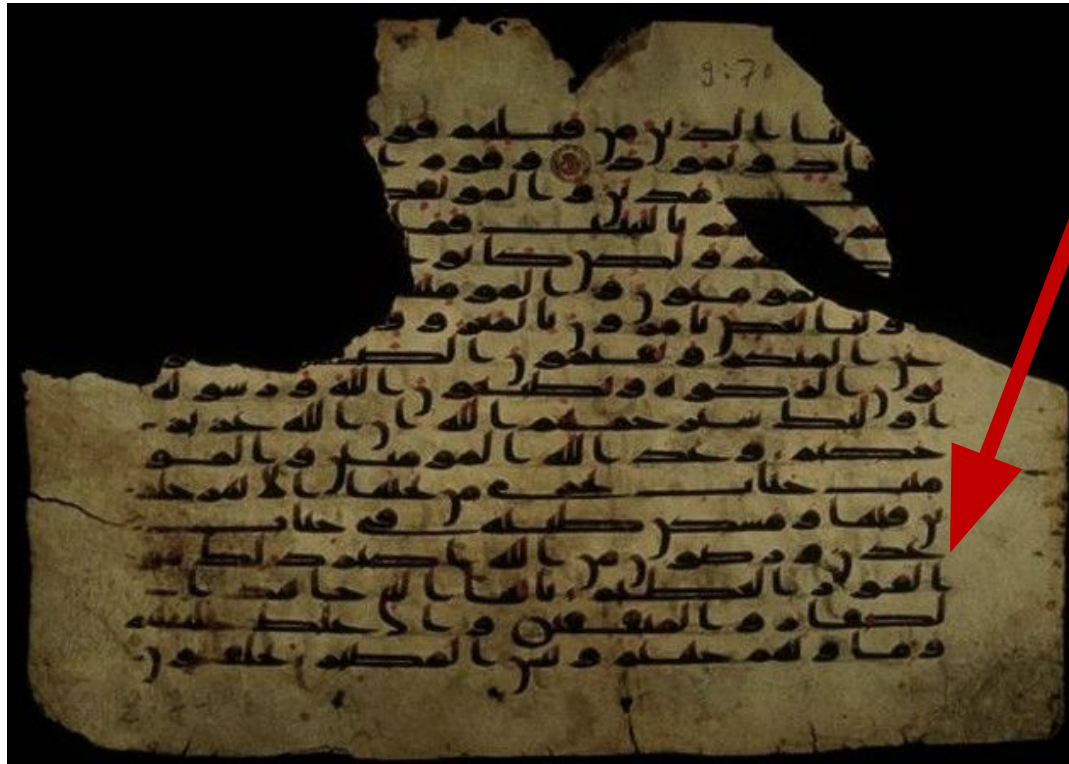 9:70
نبا الذين من قبلهم قو
عاد وثمود وقوم ا
مدين والموتفك
بالبينت فما
ولكن كانو
المومنون والمومنت
وليا بعض يامرون بالمعرو
عن المنكر ويقيمون الصلو
يوتون الزكوه ويطيعون الله ورسوله
اوليك سيرحمهم الله ان الله عزيز
حكيم وعد الله المومنين والمو
منت جنت تجري من تحتها الانهر خلد
ين فيها ومسكن طيبه في جنت
عدن ورضون من الله اكبر ذلك هو
الفوز العظيم يايها النبي جاهد ا
لكفار والمنفقين واغلظ عليهم
وماويهم جهنم وبيس المصير يحلفون